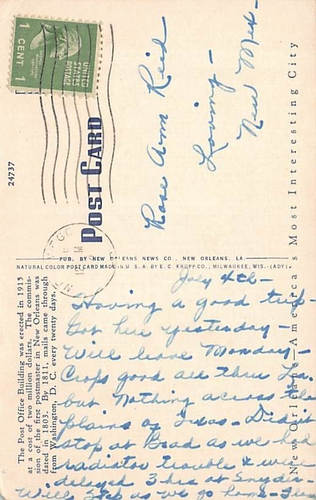 UNITED
STATES
POSTAGE
1 CENT 1
24737
POST CARD
Rose Ann Reid
Loving -
New Mex -
New Orleans, America's Most Interesting City
PUB. BY NEW ORLEANS NEWS CO., NEW ORLEANS, LA
NATURAL COLOR POST CARD MADE IN U S A. BY E. C. KROPP CO., MILWAUKEE, WIS. (ADY)
The Post Office Building was erected in 1915
at a cost of two million dollars. The commis-
sion of the first postmaster in New Orleans was
dated in 1803. By 1811, mails came through
from Washington, D. C., every twenty days.
July 4th -
Having a good trip
Got here yesterday -
Will leave Monday -
Crops good all thru La.
but nothing across the
plains of Texas - Didn't
stop at Brad as we had
radiator trouble & was
delayed 3 hrs at Snyder -
Will stop as we